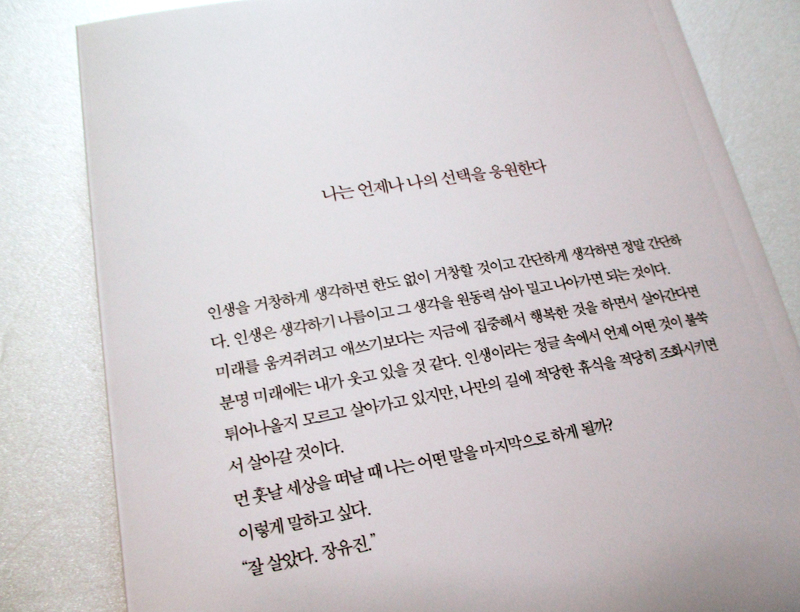 나는 언제나 나의 선택을 응원한다
인생을 거창하게 생각하면 한도 없이 거창할 것이고 간단하게 생각하면 정말 간단하
다. 인생은 생각하기 나름이고 그 생각을 원동력 삼아 밀고 나아가면 되는 것이다.
미래를 움켜쥐려고 애쓰기보다는 지금에 집중해서 행복한 것을 하면서 살아간다면
분명 미래에는 내가 웃고 있을 것 같다. 인생이라는 정글 속에서 언제 어떤 것이 불쑥
튀어나올지 모르고 살아가고 있지만, 나만의 길에 적당한 휴식을 적당히 조화시키면
서 살아갈 것이다.
먼 훗날 세상을 떠날 때 나는 어떤 말을 마지막으로 하게 될까?
이렇게 말하고 싶다.
“잘 살았다. 장유진.”